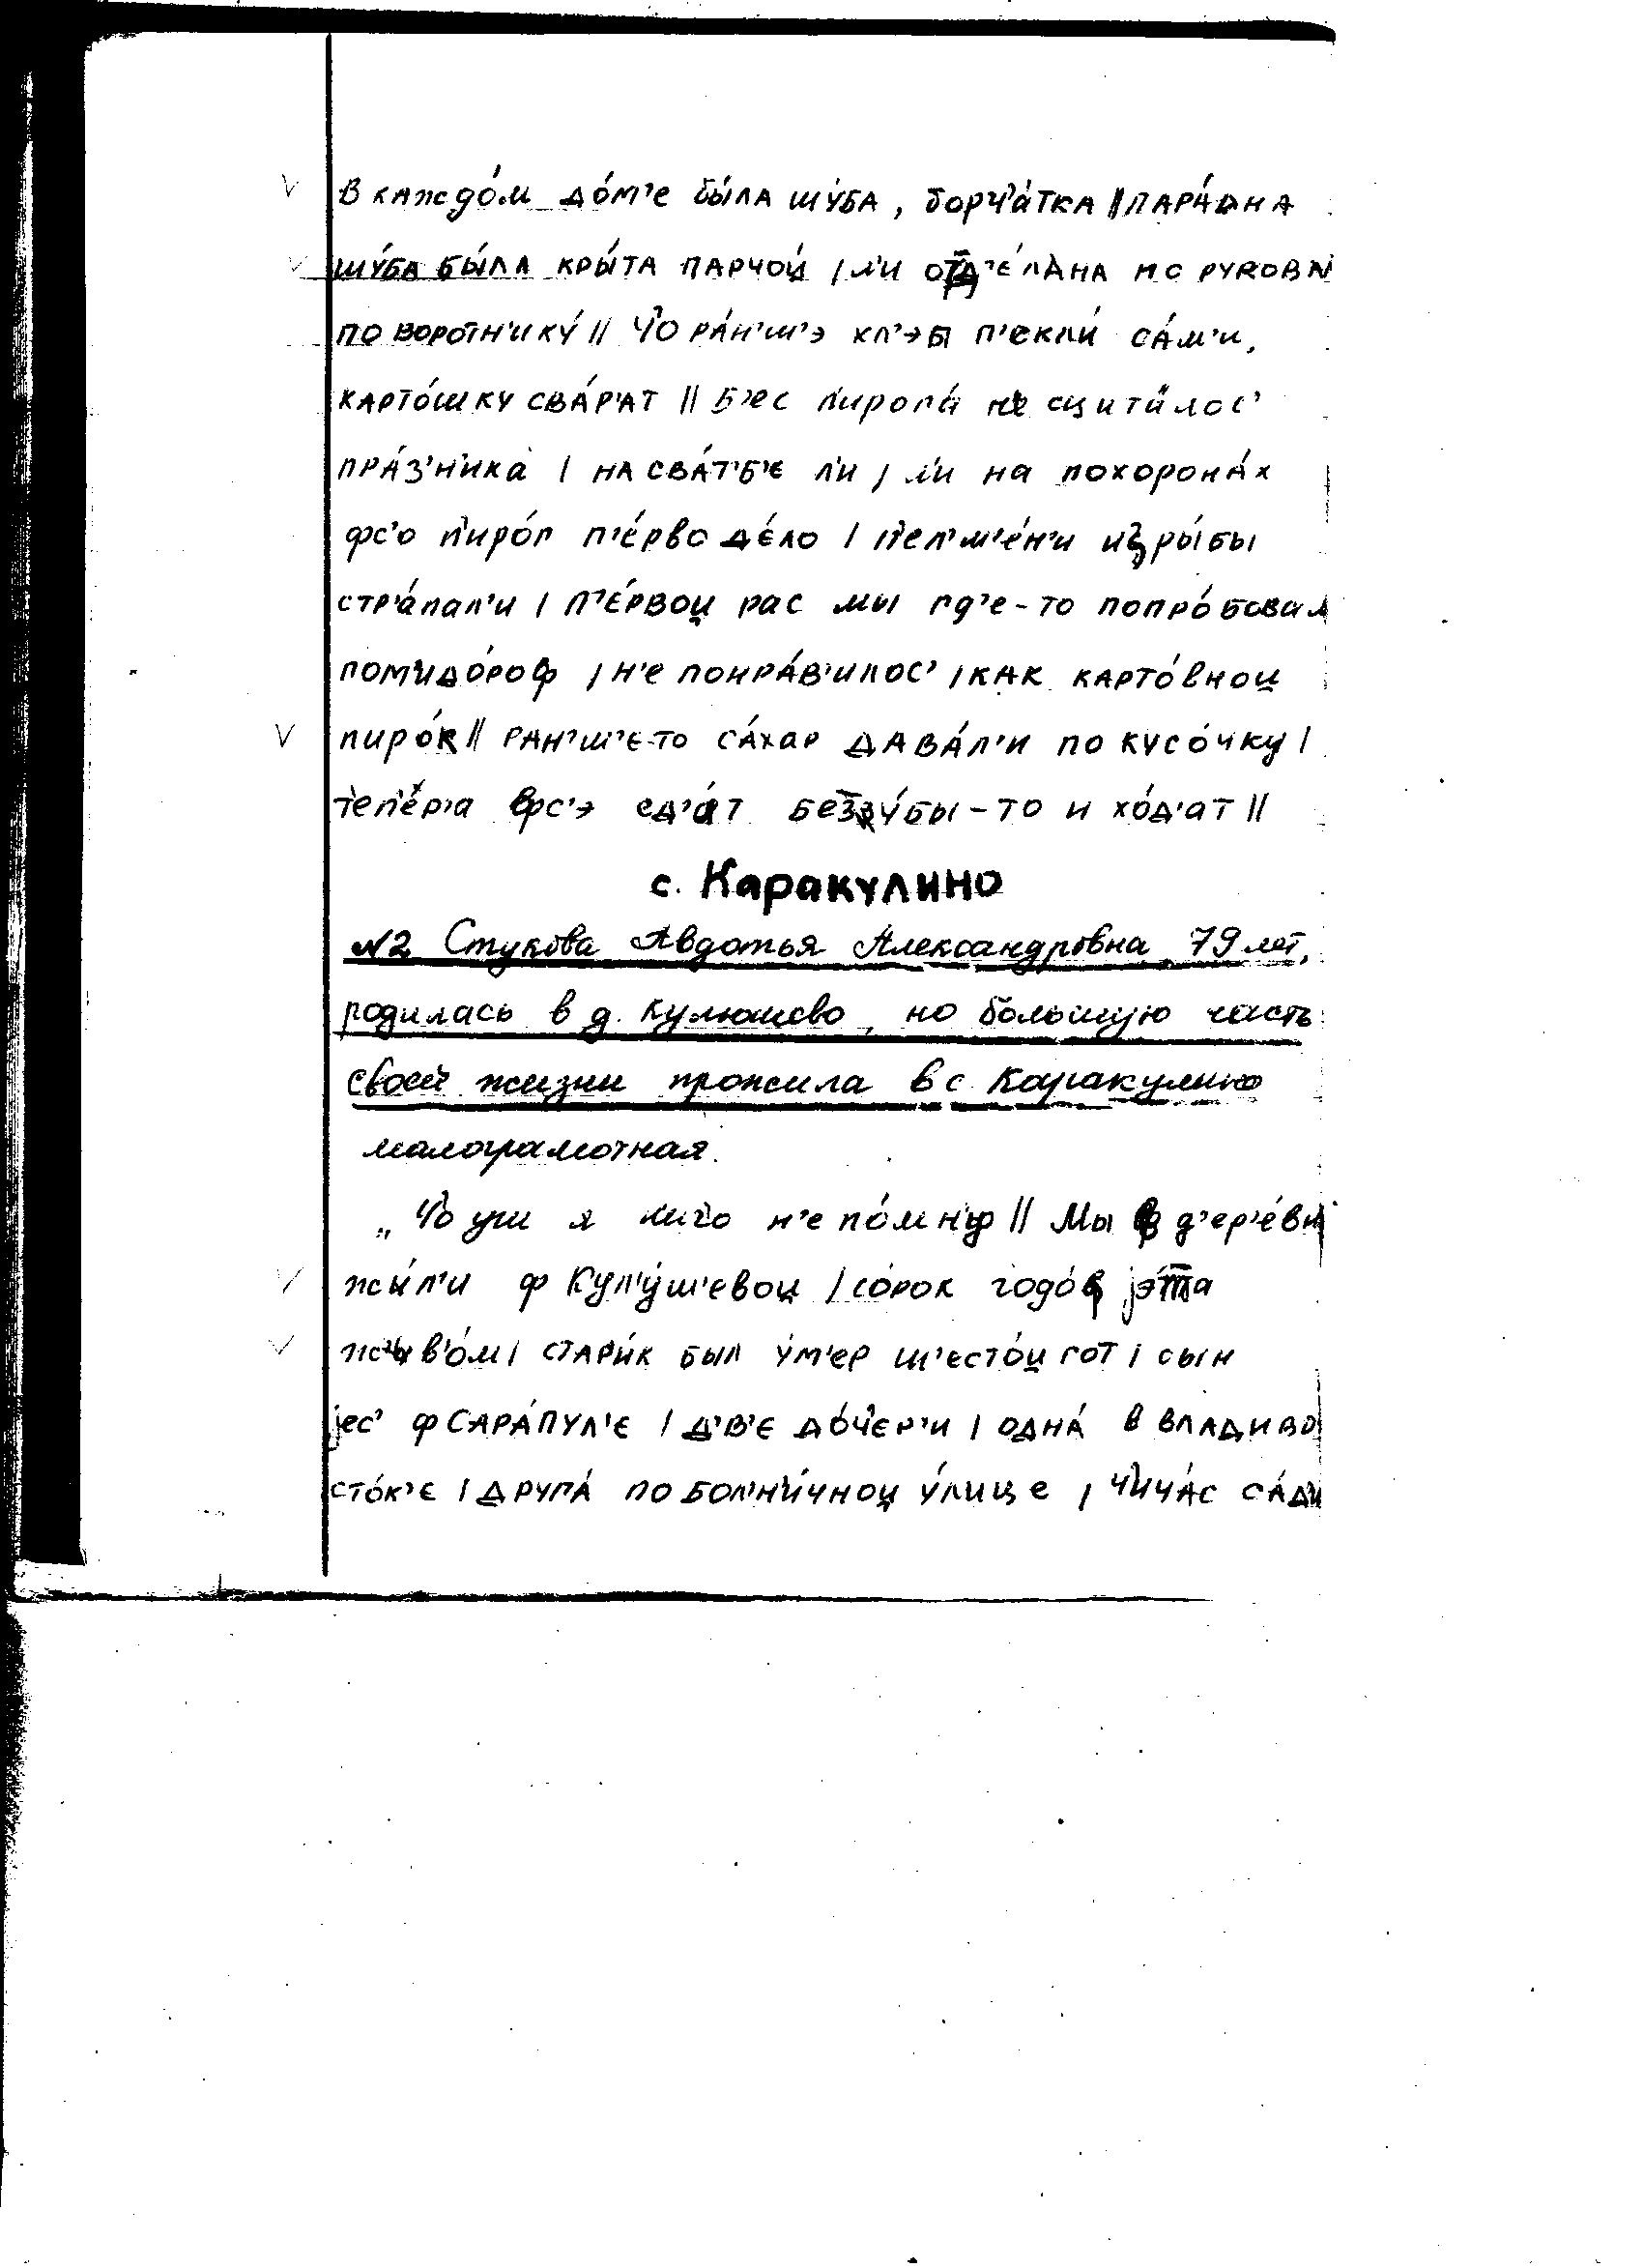 В каждо́м до́м'е бы́ла шу́ба, борч'а́тка || пара́дна
шу́ба бы́ла кры́та парчо́й | л'и отд'е́лана по рукова
по воротн'ику́ || Ч'о ра́н'ш'э хл'эбы п'екли́ са́м'и,
карто́шку сва́р'ат || Б'ес п'ирога́ не сцита́лос'
пра́з'н'ика | на сва́т'б'е л'и | л'и на похорона́х
фс'о п'иро́г п'е́рво де́ло | п'ел'м'е́н'и из ры́бы
стр'а́пал'и | п'е́рвой рас мы гд'е-то попро́бовал
пом'идо́роф | н'е понра́в'илос' | как карто́вной
пиро́к || ран'ш'е-то са́хар дава́л'и по кусо́чку |
т'еп'е́р'а фс'э ед'а́т беззу́бы-то и хо́д'ат ||
с. Каракулино
N2 Стукова Авдотья Александровна 79 лет,
родилась в д. Кулюшево, но большую часть
своей жизни прожила в с. Каракулино
малограмотная.
„Ч'о уш я нич'о н'е по́мн'у || Мы в д'ер'е́вн
жы́л'и ф Кул'у́ш'евой | со́рок годо́ф jэ́та
жыв'о́м | стари́к был у́м'ер ш'есто́й гот | сын
jес' ф Сара́пул'е | д'в'е до́ч'ер'и | одна́ в Владиво
сто́к'е | друга́ по бол'н'и́чной у́лице | ч'ич'а́с са́д'и